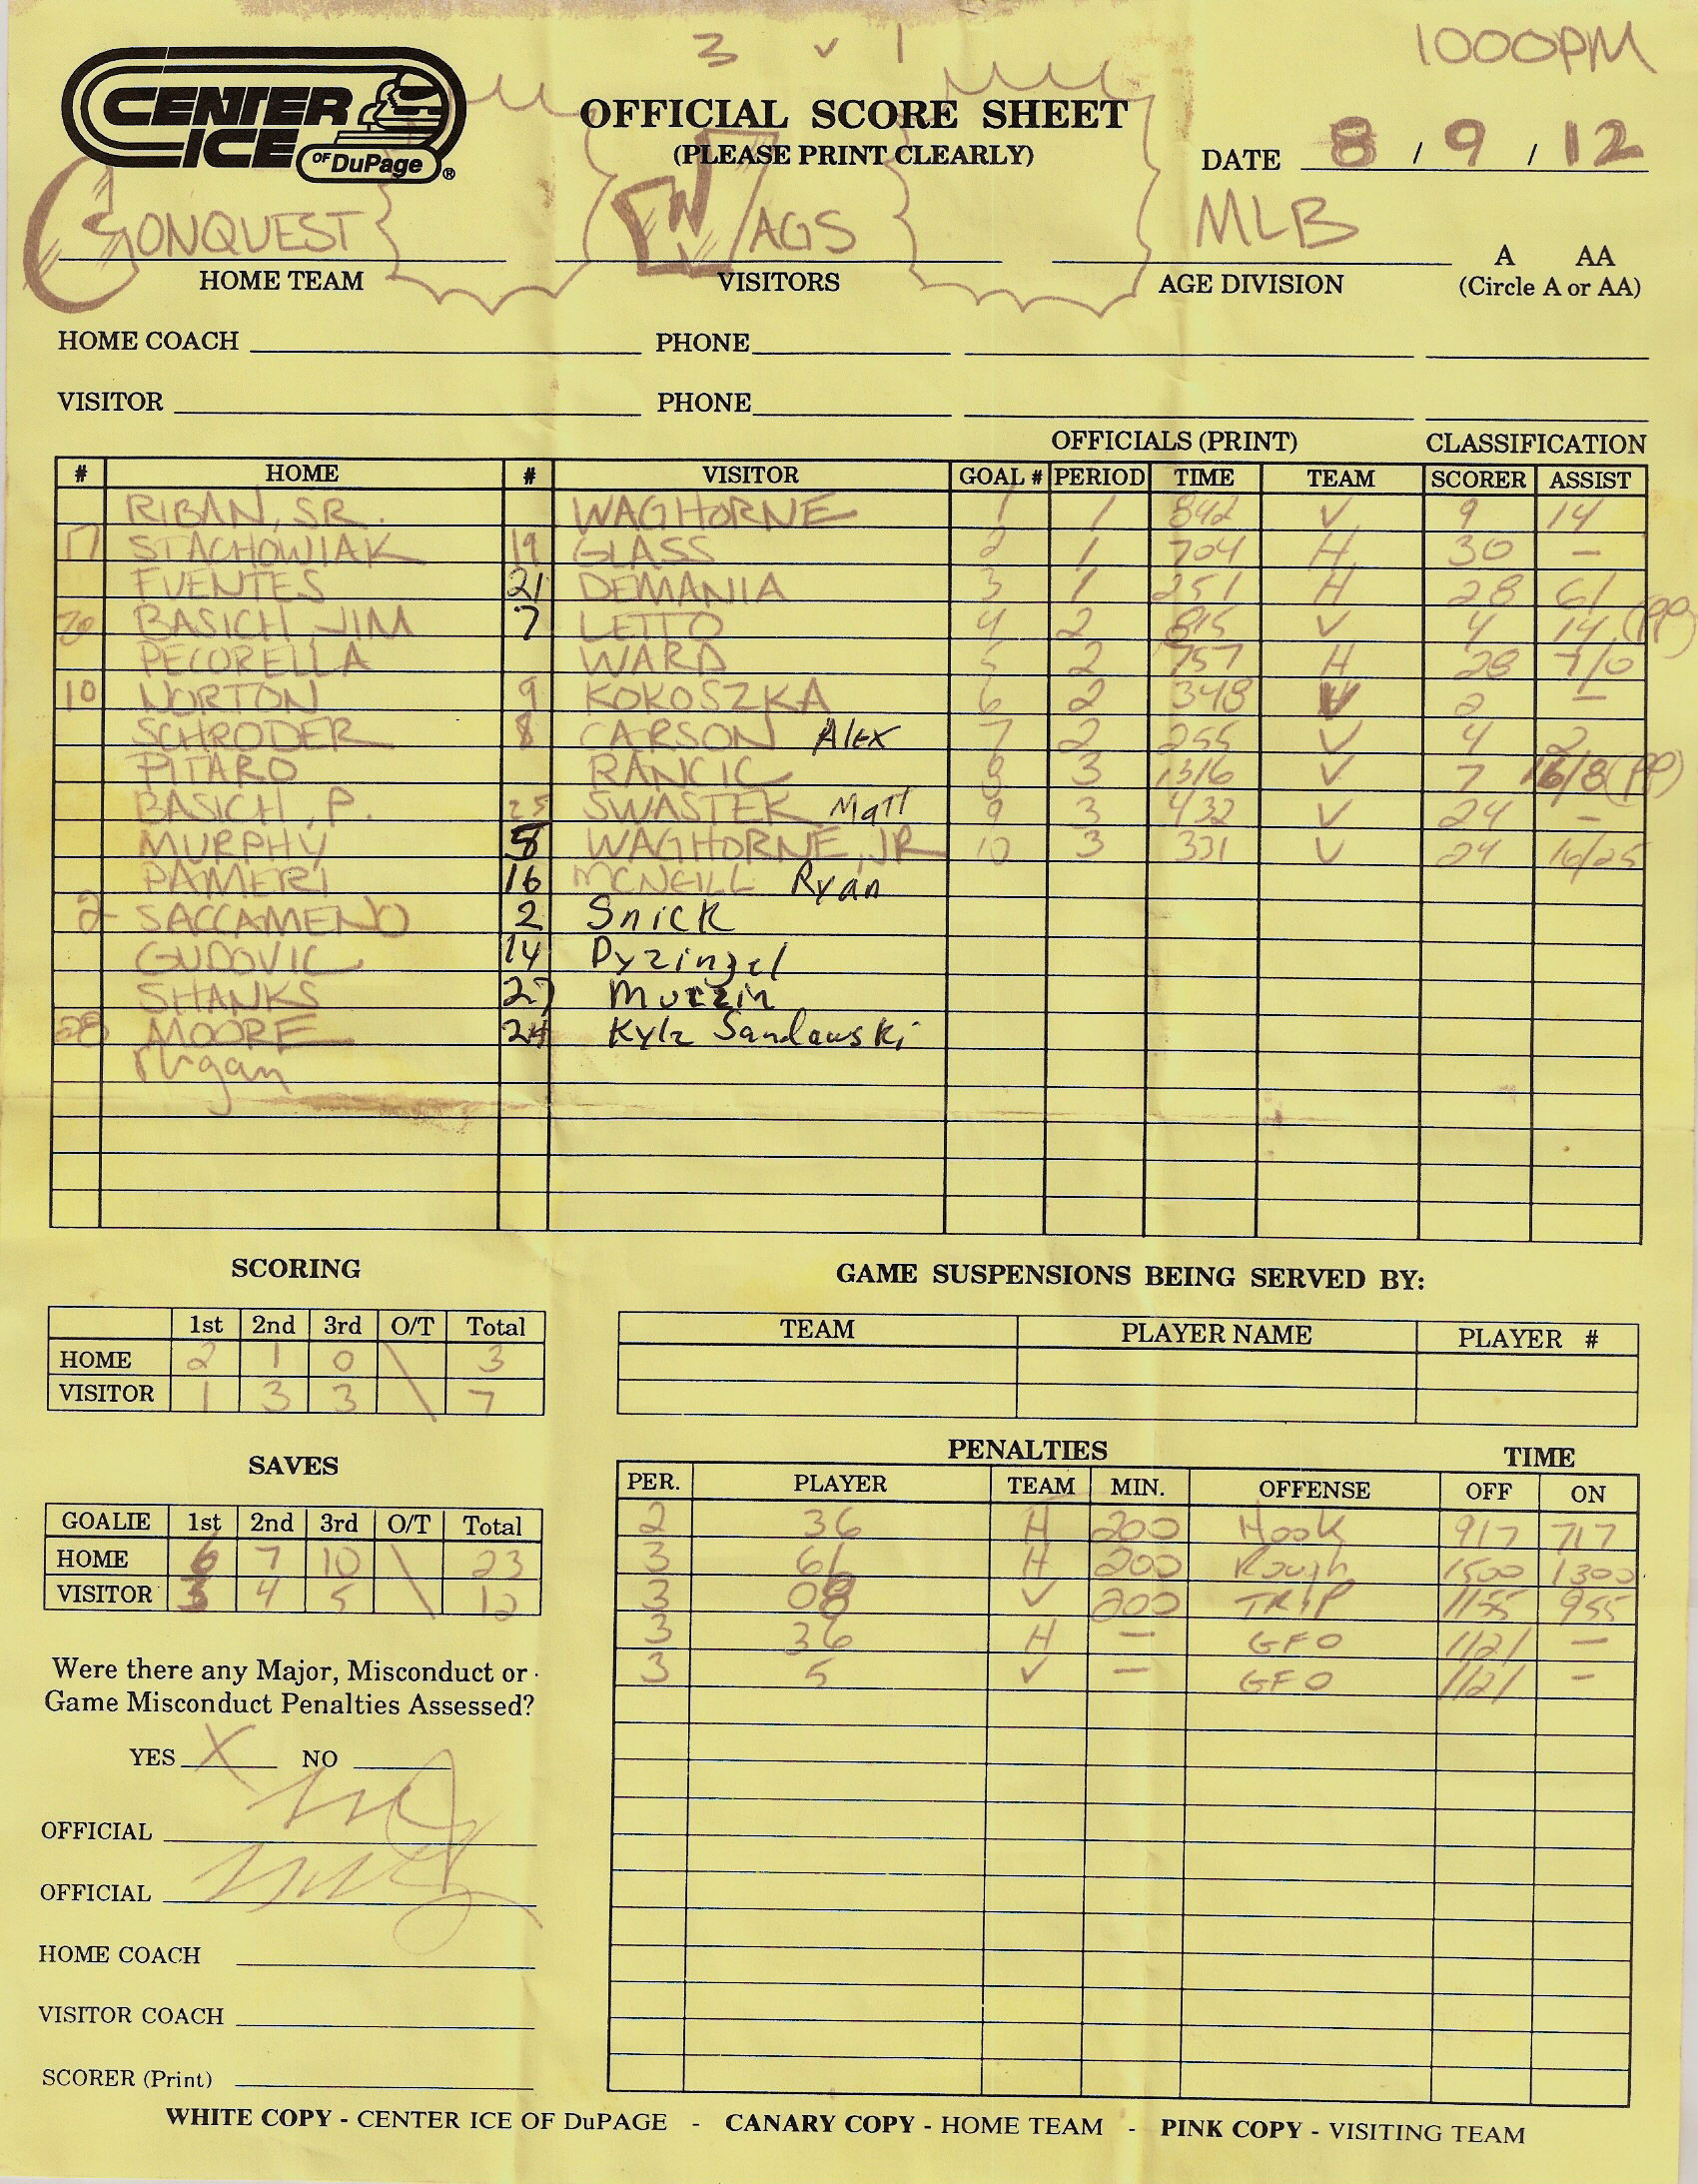 3 v 1
1000PM
CENTER
ICE
OF DuPage ®
OFFICIAL SCORE SHEET
(PLEASE PRINT CLEARLY)
DATE 8 / 9 / 12
CONQUEST WAGS MLB A AA
HOME TEAM VISITORS AGE DIVISION (Circle A or AA)
HOME COACH PHONE
VISITOR PHONE
OFFICIALS (PRINT) CLASSIFICATION
# HOME # VISITOR GOAL # PERIOD TIME TEAM SCORER ASSIST
RIBAN, SR. WAGHORNE 1 1 842 V 9 14
17 STACHOWIAK 19 GLASS 2 1 704 H 30 –
FUENTES 21 DEMANIA 3 1 251 H 28 61
BASICH, JIM 7 LETTO 4 2 815 V 4 14 (PP)
PECORELLA WARD 5 2 757 H 28 7/0
10 NORTON 9 KOKOSZKA 6 2 348 V 2 –
SCHRODER 8 CARSON Alex 7 2 255 V 4 2
PITARO RANCIC 8 3 1316 V 7 16/8 (PP)
BASICH, P. 25 SWASTEK Matt 9 3 432 V 24 –
MURPHY 5 WAGHORNE, JR 10 3 331 V 24 16/25
PAMERI 16 MCNEILL Ryan
2 SACCAMENO 2 Snick
GUDOVIC 14 Dyzingel
SHANKS 27 Murzin
28 MOORE 24 Kyle Sandowski
SCORING
1st 2nd 3rd O/T Total
HOME 2 1 0 \ 3
VISITOR 1 3 3 \ 7
GAME SUSPENSIONS BEING SERVED BY:
TEAM PLAYER NAME PLAYER #
SAVES
GOALIE 1st 2nd 3rd O/T Total
HOME 6 7 10 \ 23
VISITOR 3 4 5 \ 12
PENALTIES TIME
PER. PLAYER TEAM MIN. OFFENSE OFF ON
2 36 H 200 HOOK 917 717
3 61 H 200 Rough 1500 1300
3 08 V 200 TRIP 1155 955
3 36 H – GFO 1121 –
3 5 V – GFO 1121 –
Were there any Major, Misconduct or
Game Misconduct Penalties Assessed?
YES X NO
OFFICIAL
OFFICIAL
HOME COACH
VISITOR COACH
SCORER (Print)
WHITE COPY - CENTER ICE OF DuPAGE - CANARY COPY - HOME TEAM - PINK COPY - VISITING TEAM